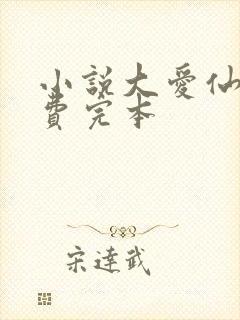 小說大愛仙
費完本
宋達武